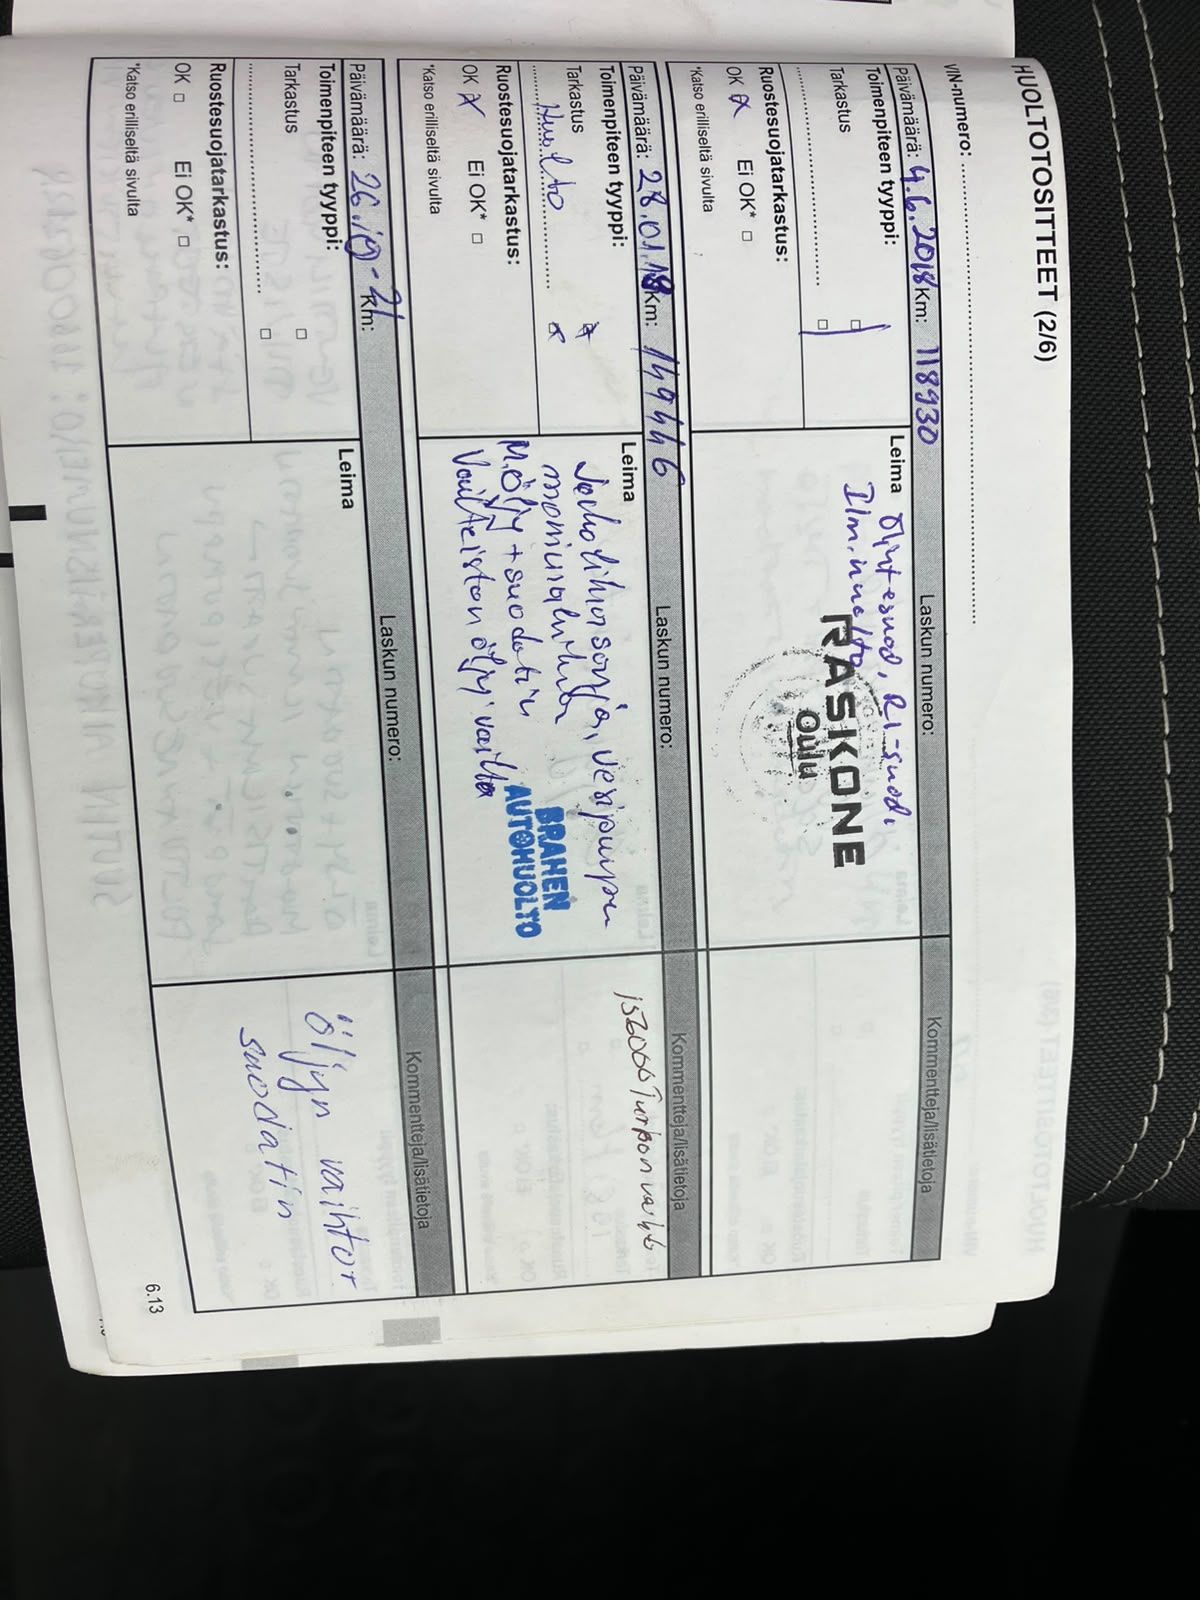 HUOLTOTOSITTEET (2/6)
VIN-numero:
Päivämäärä: 4.6.2018 Km: 118930
Laskun numero:
Kommentteja/lisätietoja
Toimenpiteen tyyppi:
Tarkastus
Ruostesuojatarkastus:
OK Ei OK*
*Katso erilliseltä sivulta
Leima
Öljyt+suod, RI-suod.
Ilm.huolto
RASKONE
Oulu
Päivämäärä: 28.01.19 Km: 149446
Laskun numero:
Kommentteja/lisätietoja
Toimenpiteen tyyppi:
Tarkastus
Huolto
Ruostesuojatarkastus:
OK Ei OK*
*Katso erilliseltä sivulta
Leima
Jakohihnasarja, vesipumppu
moniurahihna
M.Öljy + suodatin
Vaihteiston öljy vaihto
BRAHEN
AUTOHUOLTO
152000 Turbon vaihto
Päivämäärä: 26.10-21 Km:
Laskun numero:
Kommentteja/lisätietoja
Toimenpiteen tyyppi:
Tarkastus
Ruostesuojatarkastus:
OK Ei OK*
*Katso erilliseltä sivulta
Leima
Öljyn vaihto+
suodatin
6.13